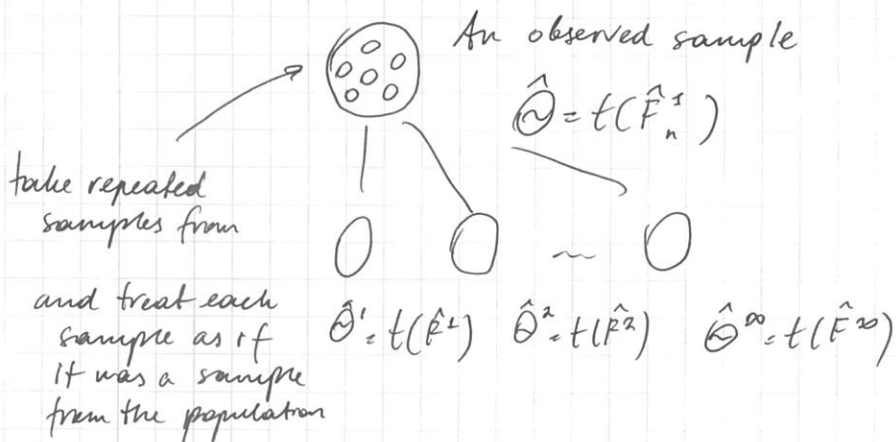 An observed sample
Θ̂ = t(F̂ₙ¹)
take repeated
samples from
and treat each
sample as if
it was a sample
from the population
Θ̂¹ = t(F̂¹) Θ̂² = t(F̂²) Θ̂^∞ = t(F̂^∞)